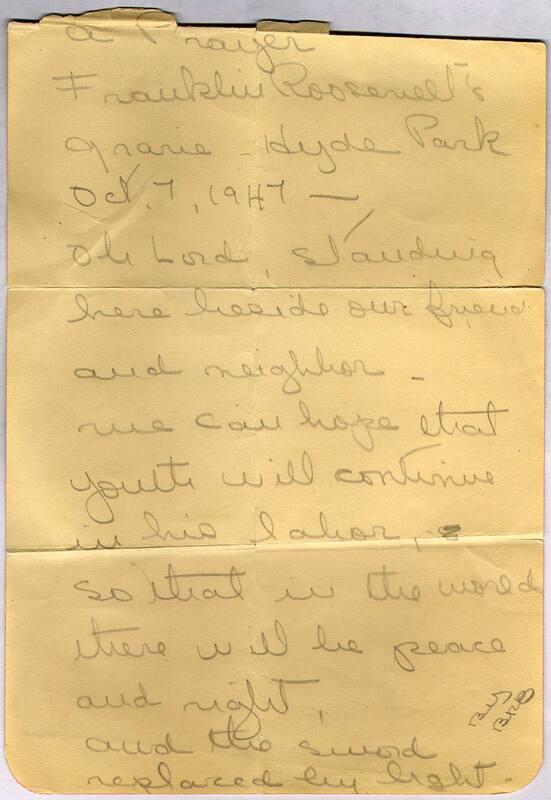 a Prayer
Franklin Roosevelt's
grave - Hyde Park
Oct. 7, 1947 —
Oh Lord, standing
here beside our friend
and neighbor -
we can hope that
youth will continue
in his labor,
so that in the world
there will be peace
and right,
and the sword
replaced by light.